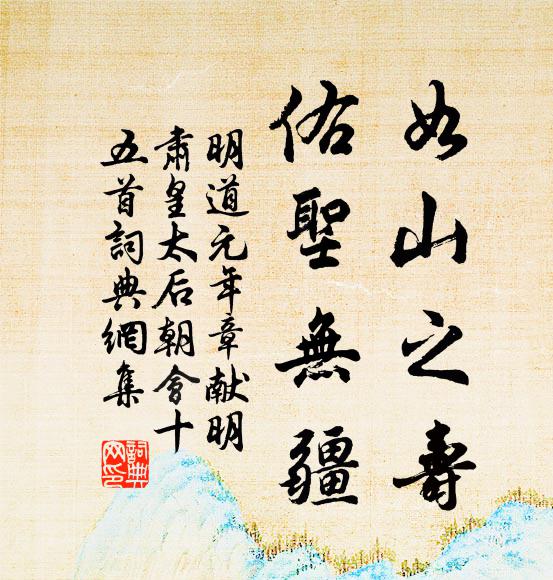 如山之壽
佑聖無疆
明道元年章献明
肅皇太后朝會十
五首詞典網集
詞典
网印